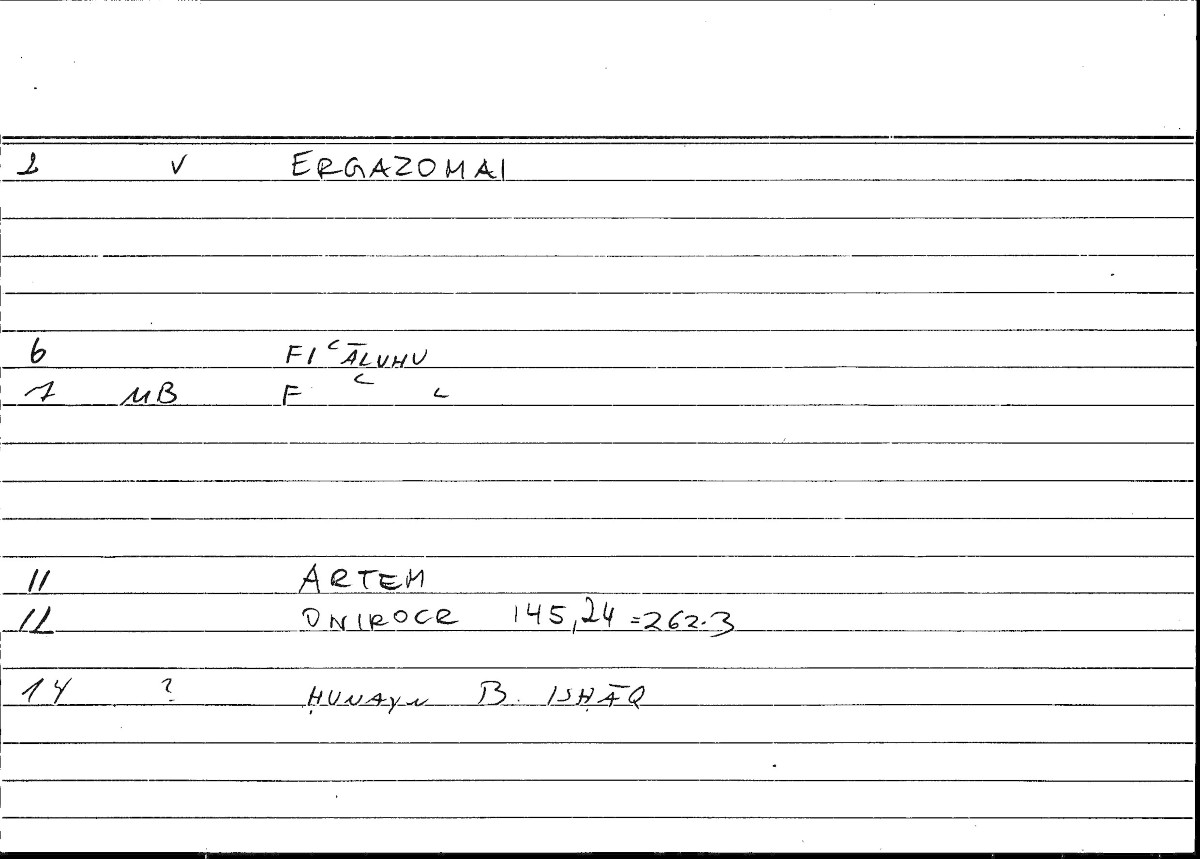 2 V ERGAZOMAI
6 FIʿĀLUHU
7 MB Fʿ L
11 ARTEM
12 ONIROCR 145,24 = 262.3
14 ? ḤUNAYN B. ISḤĀQ